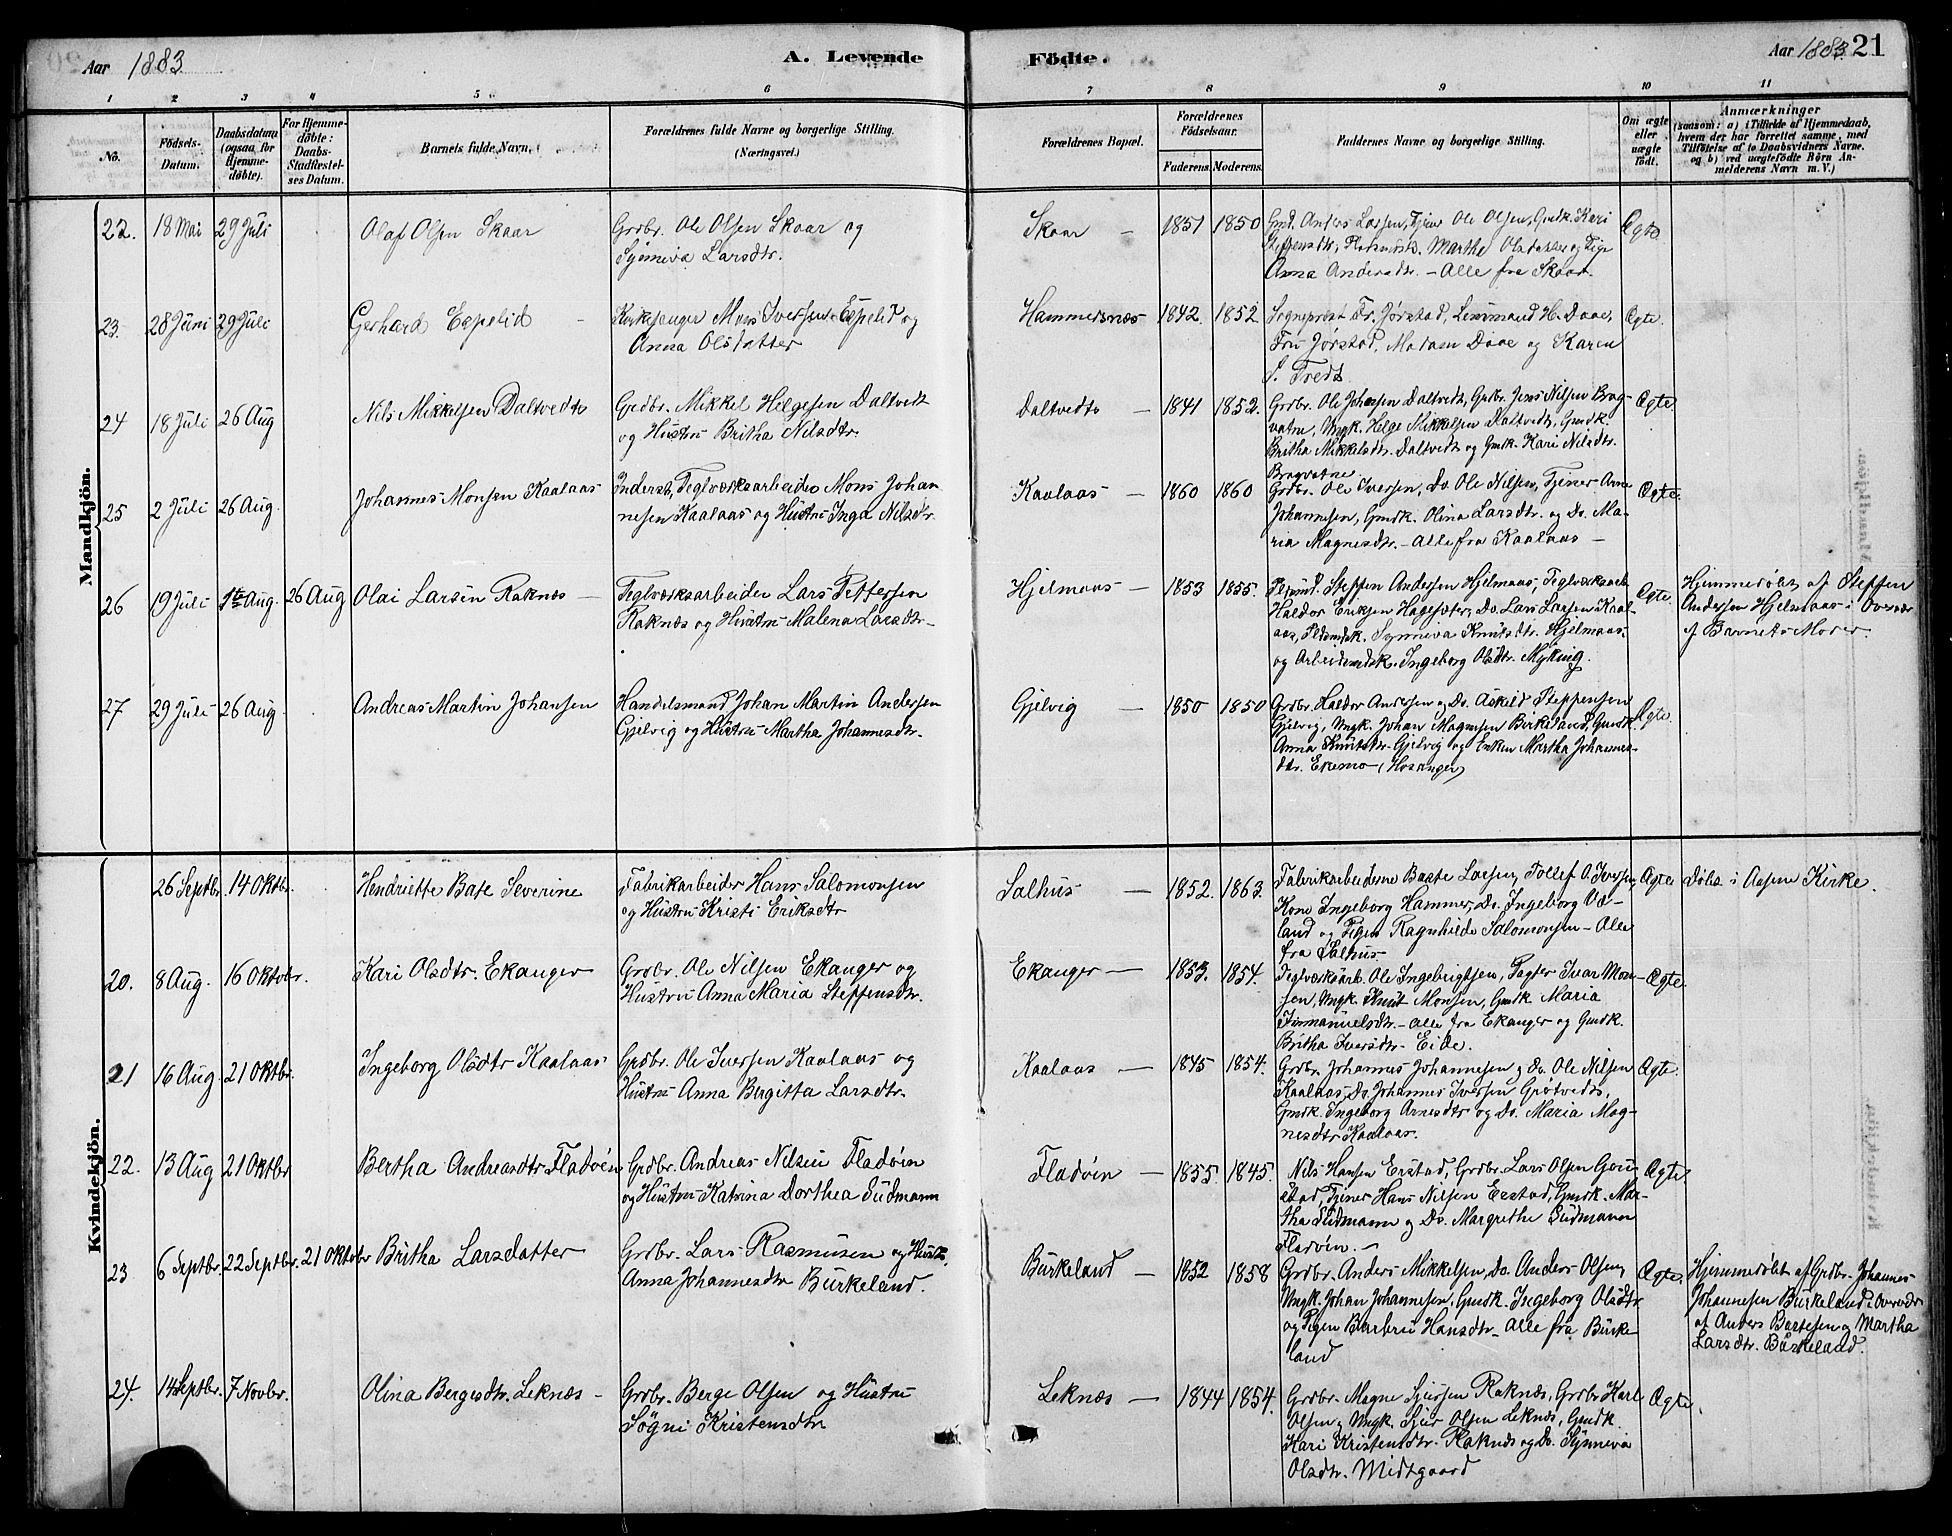 Aar 1883
A. Levende
Födte.
Aar 1883. 21
1 2 3 4 5 6 7 8 9 10 11
No.
Födsels-
Datum.
Daabsdatum
(ogsaa for
Hjemme-
döbte).
For Hjemme-
döbte:
Daabs-
Stadfæstel-
ses Datum.
Barnets fulde Navn.
Forældrenes fulde Navne og borgerlige Stilling.
(Næringsvei.)
Forældrenes Bopæl.
Forældrenes
Födselsaar.
Faderens. Moderens.
Faddernes Navne og borgerlige Stilling.
Om ægte
eller
uægte
födt.
Anmærkninger
(saasom: a) i Tilfælde af Hjemmedaab,
hvem der har forrettet samme, med
Tilföielse af to Daabsvidners Navne,
og b) ved uægtefödte Börn An-
melderens Navn m. V.)
Mandkjön.
22. 18 Mai 29 Juli Olaf Olsen Skaar
Grdbr. Ole Olsen Skaar og
Synneva Larsdtr.
Skaar – 1851 1850
Gmd. Anders Larsen, Tjener Ole Olsen, Gmdk. Kari
Steffensdtr, Martha Olsdatter og Pige
Anna Andersdtr. – Alle fra Skaar.
Ægte
23. 28 Juni 29 Juli Gerhard Espelid –
Kirkesanger Mons Iversen Espelid og
Anna Olsdatter
Hammersnæs 1842. 1852.
Sogneprest Fr. Jørstad, Lensmand H. Daae,
Fru Jørstad, Madam Daae og Karen
S. Tredt
Ægte.
24 18 Juli 26 Aug Nils Mikkelsen Daltvedt
Grdbr. Mikkel Helgesen Daltvedt
og Hustru Britha Nilsdtr.
Daltvedt – 1841 1852.
Grdbr. Ole Johansen Daltvedt, Grdbr. Jens Nilsen Brag-
vatne, Ungk. Helge Mikkelsen Daltvedt, Gmdk.
Britha Mikkelsdtr. Daltvedt og Gmdk. Kari Nilsdtr.
Bragvatne
Ægte.
25 2 Juli 26 Aug. Johannes Monsen Kaalaas
Inderst, Teglværksarbeider Mons Johan
nesen Kaalaas og Hustru Inga Nilsdtr.
Kaalaas – 1860 1860
Grdbr. Ole Iversen, Do. Ole Nilsen, Tjener Arne
Johannesen, Gmdk. Olina Larsdtr. og Do. Ma-
ria Magnesdtr. – Alle fra Kaalaas –
Ægte.
26 19 Juli 1ste Aug. 26 Aug Olai Larsen Raknæs –
Teglværksarbeider Lars Pettersen
Raknæs og Hustru Malena Larsdtr. –
Hjelmaas – 1853 1855.
Steffen Andersen Hjelmaas, Teglværksarb.
Haldor Eriksen Hagesæter, Do. Lars Larsen Kaal-
aas, Synneva Knutsdtr. Hjelmaas.
og Arbeidsmdk. Ingeborg Olsdtr. Myking.
Ægte.
Hjemmedøbt af Steffen
Andersen Hjelmaas i Overvær
af Barnets Moder.
27 29 Juli 26 Aug. Andreas Martin Johansen
Handelsmand Johan Martin Andersen
Gjelvig og Hustru Martha Johannesdtr.
Gjelvig – 1850 1850
Grdbr. Haldor Andersen og Do. Askild Steffensen
Gjelvig, Ungk. Johan Magnesen Birkeland, Gmdk
Anna Knutsdtr. Gjelvig og Enken Martha Johannes-
dtr. Ekemo (Hosanger)
Ægte.
Kvindekjön.
26 Septbr. 14 Oktbr. Hendriette Bate Severine
Fabrikarbeider Hans Salomonsen
og Hustru Kristi Eriksdtr
Salhus – 1852. 1863.
Fabrikarbeiderne Baste Larsen, Tollef O. Iversen,
Kone Ingeborg Hammer, Do. Ingeborg Od-
land og Pigen Ragnhilde Salomonsen – Alle
fra Salhus –
Ægte
Døbt i Aasen Kirke.
20. 8 Aug. 16 Oktober. Kari Olsdtr. Ekanger
Grdbr. Ole Nilsen Ekanger og
Hustru Anna Maria Steffensdtr.
Ekanger – 1853. 1854.
Teglværksarb. Ole Ingebrigtsen, Pagter Ivar Mon-
sen, Ungk Knut Monsen, Gmdk Maria
Immanuelsdtr. – Alle fra Ekanger og Gmdk.
Britha Iversdtr. Eide.
Ægte.
21 16 Aug. 21 Oktbr. Ingeborg Olsdtr Kaalaas
Grdbr. Ole Iversen Kaalaas og
Hustru Anna Bergitta Larsdtr.
Kaalaas – 1845 1854.
Grdbr. Johannes Johannesen og Do. Ole Nilsen
Kaalaas, Do. Johannes Iversen Grøtvedt,
Gmdk. Ingeborg Arnesdtr og Do. Maria Mag-
nesdtr Kaalaas.
Ægte.
22. 13 Aug 21 Oktbr Bertha Andreasdtr Fladøen
Grdbr. Andreas Nilsen Fladøen
og Hustru Katrina Dorthea Sudmann
Fladøen – 1855. 1845.
Nils Hansen Erstad, Grdbr. Lars Olsen Gou-
stad, Tjener Hans Nilsen Erstad, Gmdk. Mar-
tha Sudmann og Do. Margrethe Sudmann
Fladøen. –
Ægte.
23 6 Septbr. 22 Septbr. 21 Oktobr Britha Larsdatter
Grdbr. Lars Rasmusen og Hustr.
Anna Johannesdtr Burkeland.
Burkeland – 1852 1858
Grdbr. Anders Mikkelsen, Do. Anders Olsen,
Ungk. Johan Johannesen, Gmdk. Ingeborg Olsdtr
og Pigen Barbru Hansdtr – Alle fra Burke
land
Ægte.
Hjemmedøbt af Grdbr. Johannes
Johannesen Burkeland i Overvær
af Anders Bertesen og Martha
Larsdtr. Burkeland.
24. 14 Septbr. 7 Novbr. Olina Bergesdtr. Leknæs –
Grdbr. Berge Olsen og Hustru
Søgni Kristensdtr
Leknæs – 1844 1854.
Grdbr. Magne Sjursen Raknæs, Grdbr Karl
Olsen, Ungk. Sjur Olsen Leknæs, Gmdk.
Kari Kristensdtr. Raknæs og Do. Synneva
Olsdtr. Midtgaard
Ægte.